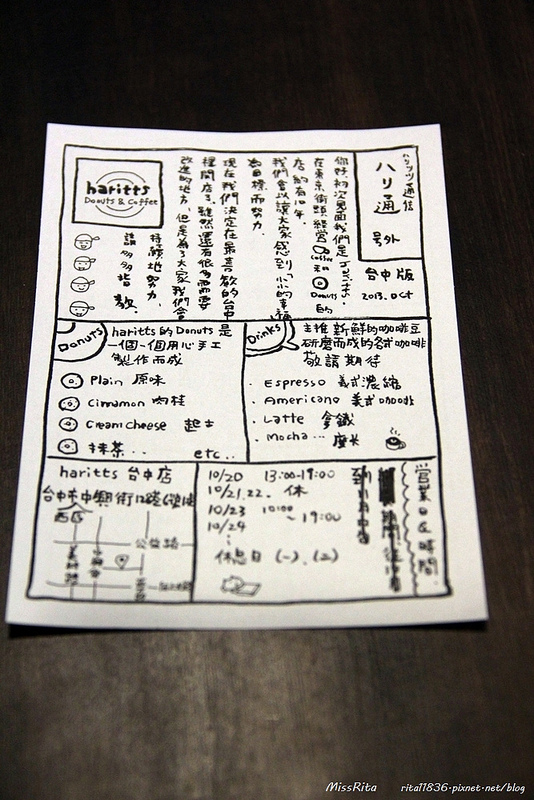 ハリッツ通信
ハリ通
号外
台中版
2013.Oct
haritts
Donuts & Coffee
你好，初次見面我們是
在東京街頭經營 Coffee 和 Donuts 的
店約有10年．
我們會以讓大家感到「小小的幸福」
為目標而努力．
現在我們決定在最喜歡的台中
裡開店了．雖然還有很多需要
改進的地方，但是為了大家我們會
持續地努力．
請多多指教．
Donuts
haritts 的 Donuts 是
一個一個用心手工
製作而成
Plain 原味
Cinnamon 肉桂
Cream cheese 起士
抹茶..
etc..
Drinks
主推新鮮的咖啡豆
研磨而成的各式咖啡
敬請期待
Espresso 義式濃縮
Americano 美式咖啡
Latte 拿鐵
Mocha... 摩卡
haritts 台中店
台中市中興街12號
西區
公益路
営業日&時間
10/20 13:00-19:00
10/21.22. 休
10/23 10:00
10/24 ~ 19:00
休息日 (一).(二)
MissRita
rita11836.pixnet.net/blog